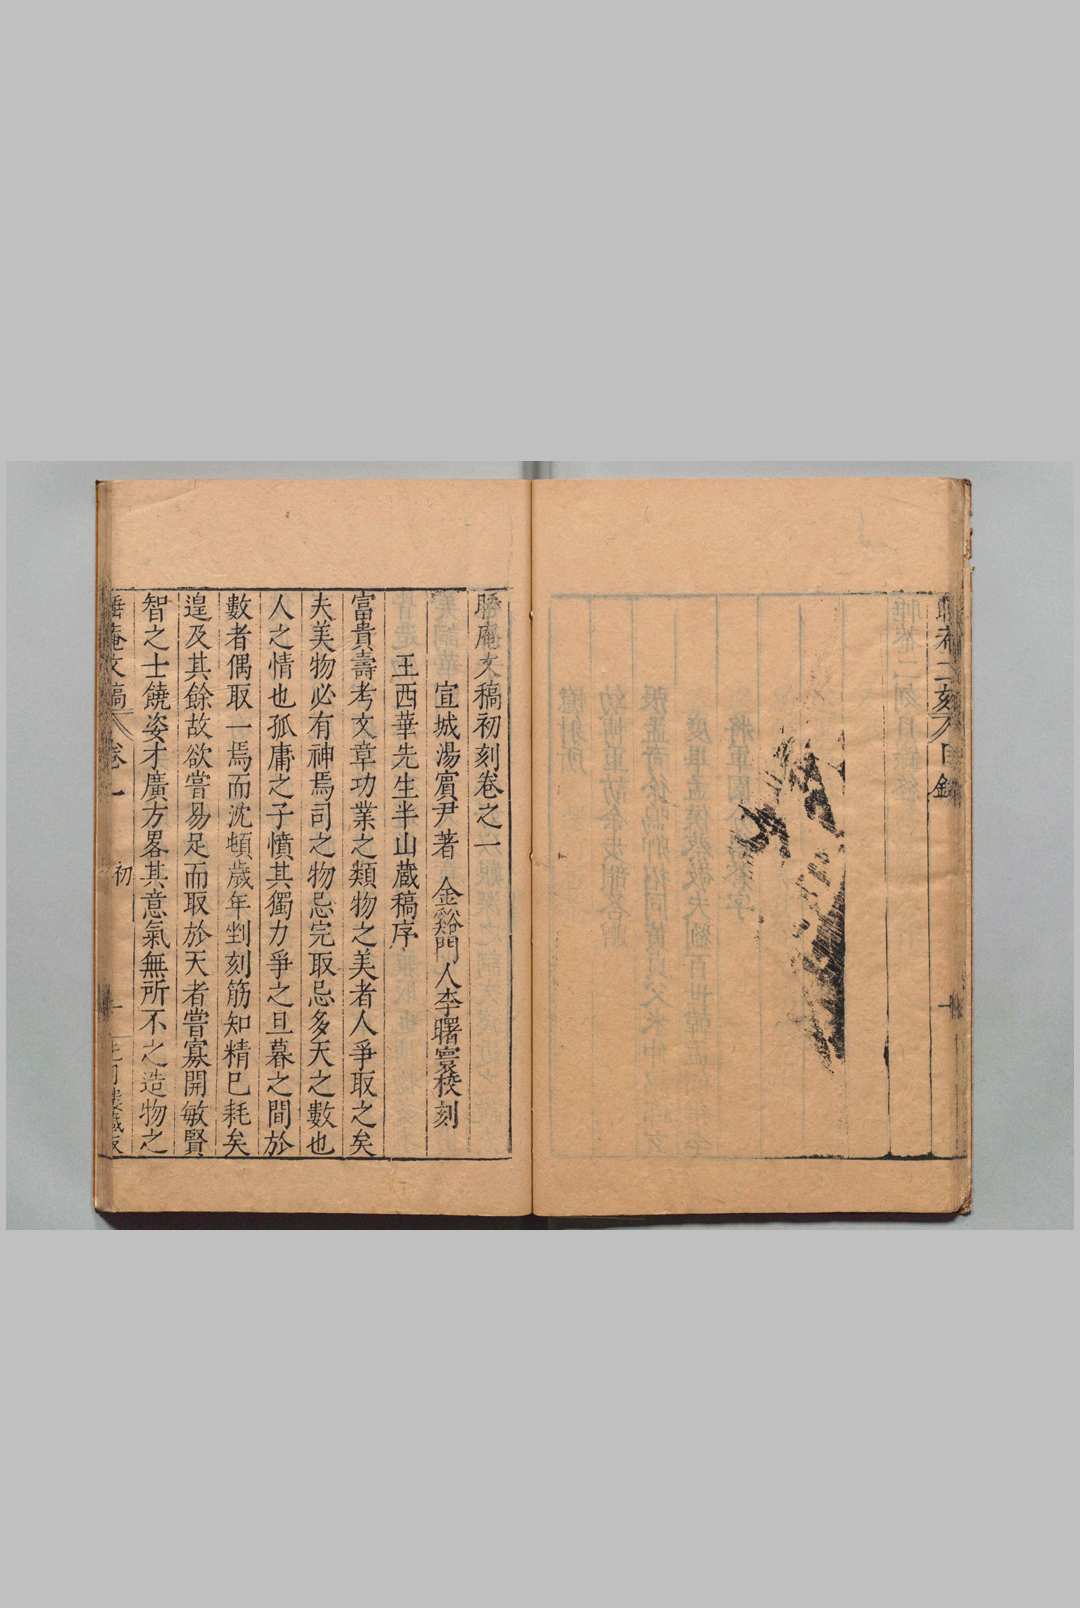 睡庵文稿初刻卷之一
宣城湯賓尹著 金谿門人李曙寰校刻
王西華先生半山藏稿序
富貴壽考文章功業之類物之美者人爭取之矣
夫美物必有神焉司之物忌完取忌多天之數也
人之情也孤庸之子憤其獨力爭之旦暮之間於
數者偶取一焉而沈頓歲年剉刻筋知精已耗矣
遑及其餘故欲嘗易足而取於天者嘗寡開敏賢
智之士饒姿才廣方畧其意氣無所不之造物之
睡庵文稿 卷一 初 一